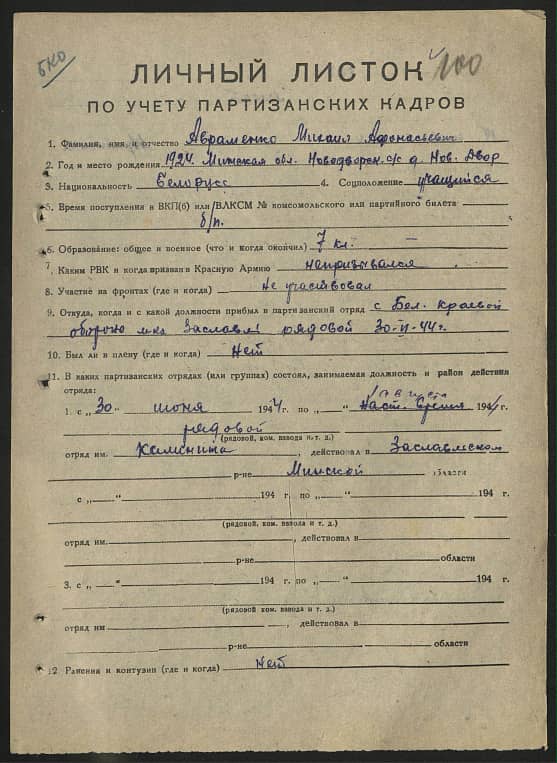 БКО
100
ЛИЧНЫЙ ЛИСТОК
ПО УЧЕТУ ПАРТИЗАНСКИХ КАДРОВ
1. Фамилия, имя и отчество Авраменко Михаил Афонасьевич
2. Год и место рождения 1924. Минская обл. Новодворск. с/с д. Нов. Двор
3. Национальность Белорусс 4. Соцположение учащийся
5. Время поступления в ВКП(б) или ВЛКСМ № комсомольского или партийного билета
б/п.
6. Образование: общее и военное (что и когда окончил) 7 кл.
7. Каким РВК и когда призван в Красную Армию непризывался
8. Участие на фронтах (где и когда) Не участвовал
9. Откуда, когда и с какой должности прибыл в партизанский отряд с Бел. краевой
обороны м-ка Заславль рядовой 30-VI-44 г.
10. Был ли в плену (где и когда) Нет
11. В каких партизанских отрядах (или группах) состоял, занимаемая должность и район действия
отряда:
1. с „30“ июня 1944 г. по „ “ Наст. время 194 г.
рядовой
(рядовой, ком. взвода и т. д.)
отряд им. Калинина, действовал в Заславльском
р-не Минской области
с „ “ 194 г. по „ “ 194 г.
(рядовой, ком. взвода и т. д.)
отряд им. , действовал в
р-не области
3. с „ “ 194 г. по „ “ 194 г.
(рядовой, ком. взвода и т. д.)
отряд им , действовал в
р-не области
12. Ранения и контузии (где и когда) Нет